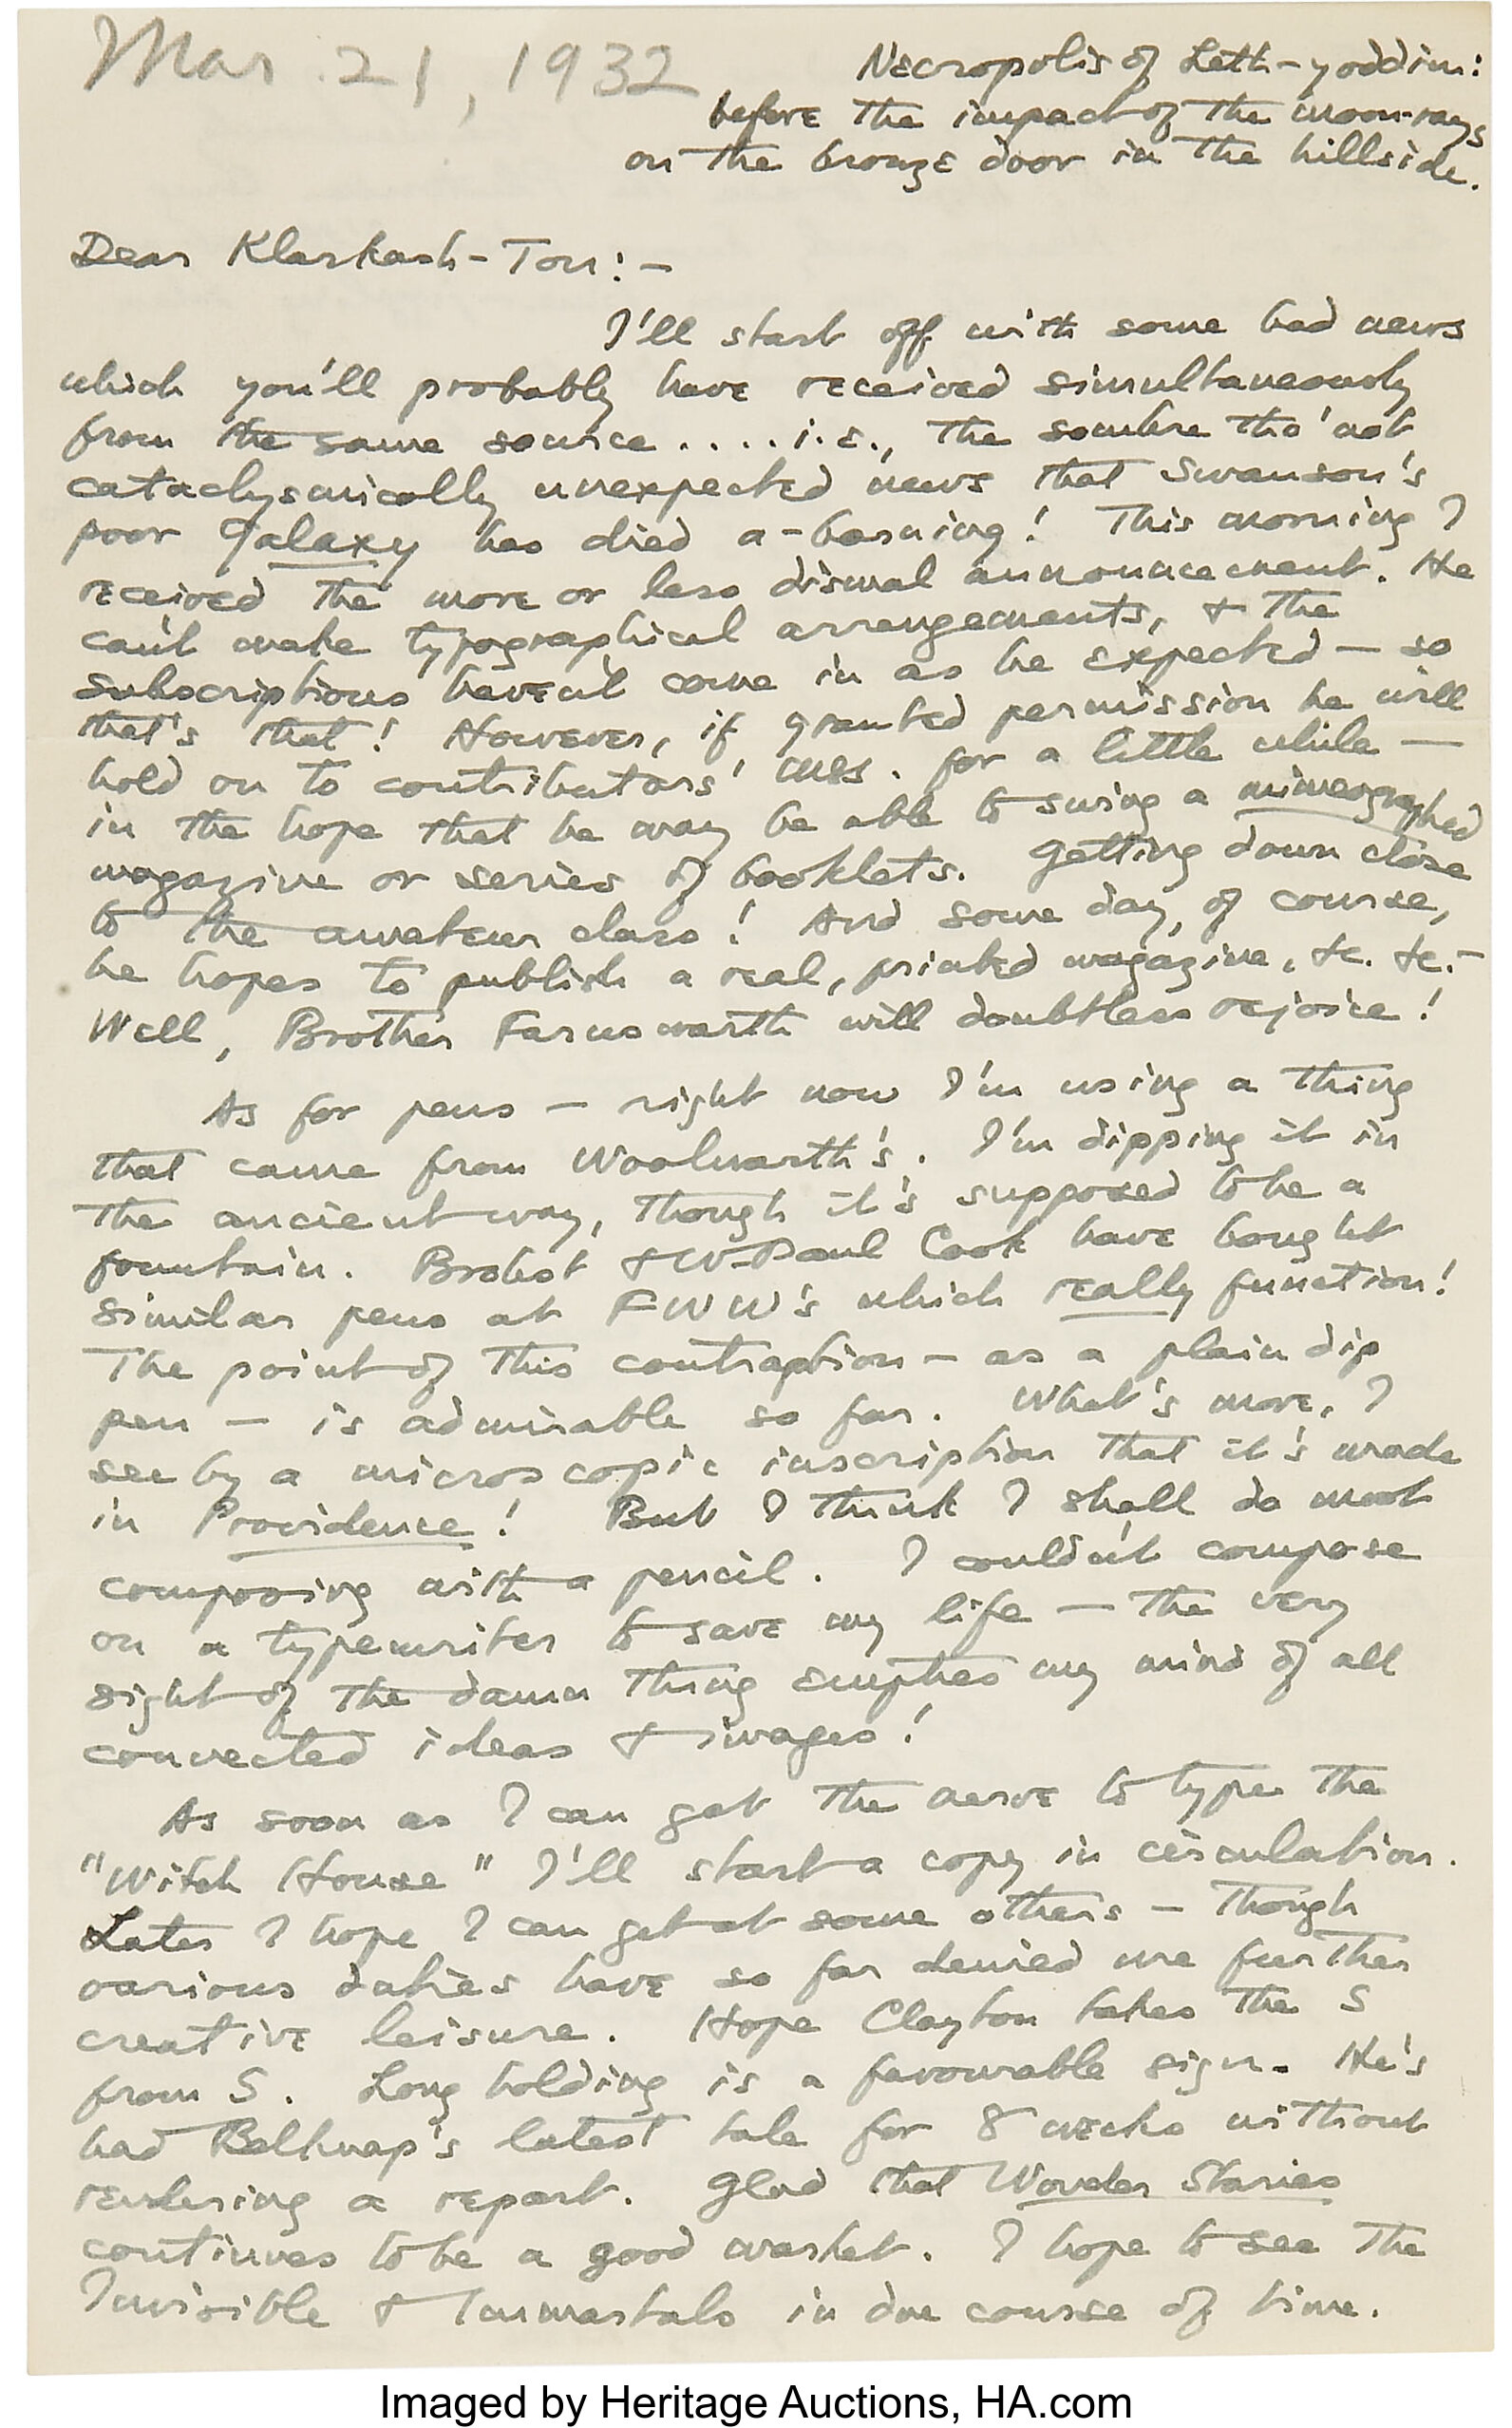 Mar 21, 1932
Necropolis of Leth-yoddim:
before the impact of the moon-rays
on the bronze door in the hillside.
Dear Klarkash-Ton:—
I'll start off with some bad news
which you'll probably have received simultaneously
from the same source . . . . i.e., the sombre tho' not
cataclysmically unexpected news that Swanson's
poor Galaxy has died a-borning! This morning I
received the more or less dismal announcement. He
can't make typographical arrangements, & the
subscriptions haven't come in as he expected — so
that's that! However, if granted permission he will
hold on to contributors' mss. for a little while —
in the hope that he may be able to swing a mimeographed
magazine or series of booklets. Getting down close
to the amateur class! And some day, of course,
he hopes to publish a real, printed magazine, &c. &c.—
Well, Brother Farnsworth will doubtless rejoice!
As for pens — right now I'm using a thing
that came from Woolworth's. I'm dipping it in
the ancient way, though it's supposed to be a
fountain. Brobst & W. Paul Cook have bought
similar pens at FWW's which really function!
The point of this contraption — as a plain dip
pen — is admirable so far. What's more, I
see by a microscopic inscription that it's made
in Providence! But I think I shall do most
composing with a pencil. I couldn't compose
on a typewriter to save my life — the very
sight of the damn thing empties my mind of all
connected ideas & images!
As soon as I can get the nerve to type the
"Witch House" I'll start a copy in circulation.
Later I hope I can get at some others — though
various duties have so far denied me further
creative leisure. Hope Clayton takes the S
from S. Long holding is a favourable sign. He's
had Belknap's latest tale for 8 weeks without
rendering a report. Glad that Wonder Stories
continues to be a good market. I hope to see the
Invisible & Immortals in due course of time.
Imaged by Heritage Auctions, HA.com